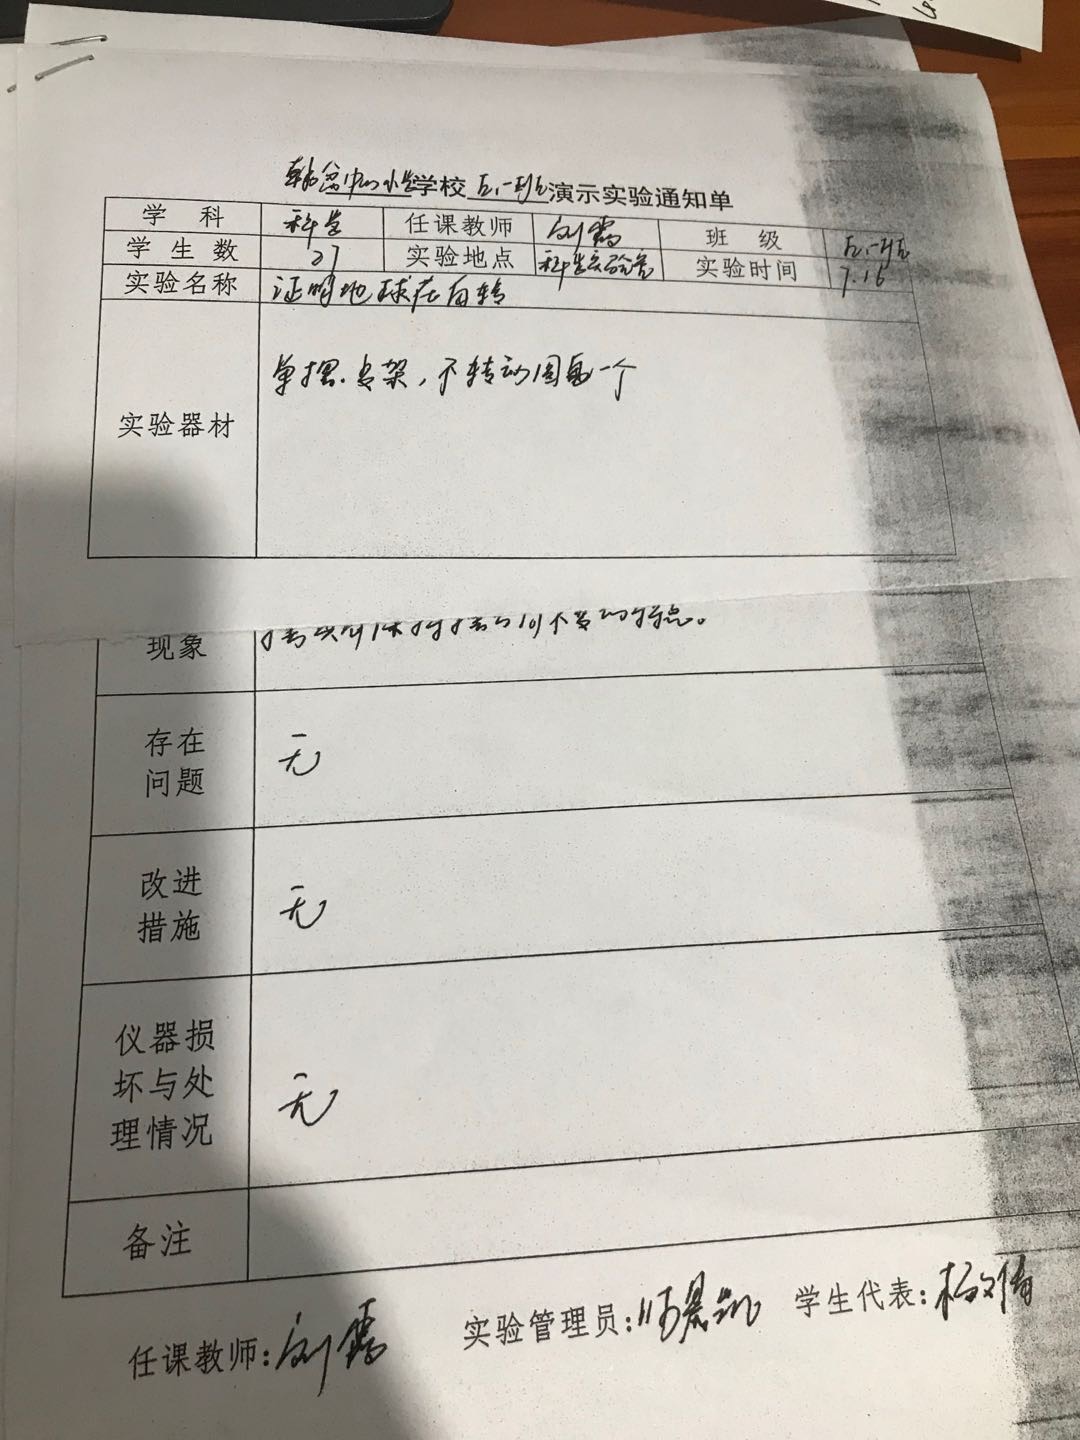 韩岔中心小学学校五.一班演示实验通知单
学 科 科学 任课教师 刘霭 班 级 五.一班
学生数 27 实验地点 科学实验室 实验时间 7.16
实验名称 证明地球在自转
实验器材 单摆.支架,不转动圆盘一个
现象 不变的特点。
存在问题 无
改进措施 无
仪器损坏与处理情况 无
备注
任课教师:刘 实验管理员: 学生代表:杨文倩